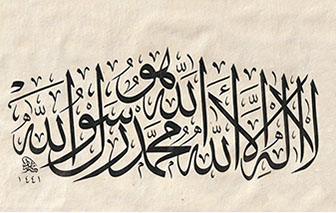 لا إله إلا الله الله هو محمد رسول الله
١٤٤١